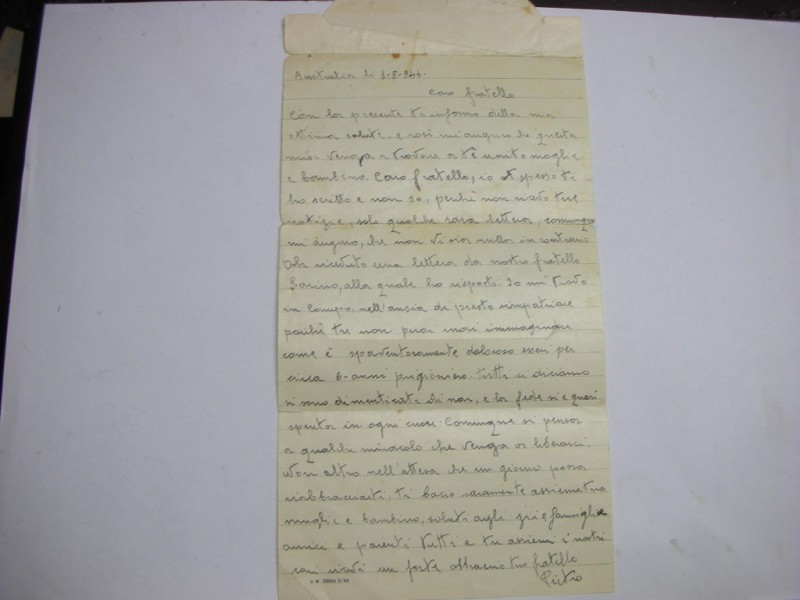 Australia li 3-8-946-
Caro fratello
Con la presente ti informo della mia
ottima salute, e così mi auguro che questa
mia venga a trovare a tè unito moglie
e bambino. Caro fratello, io spesso ti
ho scritto e non so, perchè non ricevo tue
notizie, solo qualche rara lettera, comunque
mi auguro, che non vi sia nulla in contrario
ricevuto una lettera da nostro fratello
alla quale ho risposto. Io mi trovo
in Campo, nell'ansia di presto rimpatriare
poichè tu non puoi mai immaginare
come è spaventosamente doloroso esseri per
circa 6-anni prigioniero. tutti ci diciamo
si sono dimenticati di noi, e la fede si e quasi
spenta in ogni cuore. Comunque si pensa
a qualche miracolo che venga a liberarci.
Non altro nell'attesa che un giorno possa
riabbracciarti, ti bacio caramente assieme tua
moglie e bambino, saluti agli zii e famiglie
amici e parenti tutti e tu assiemi i nostri
cari ricevi un forte abbraccio tuo fratello
Pietro